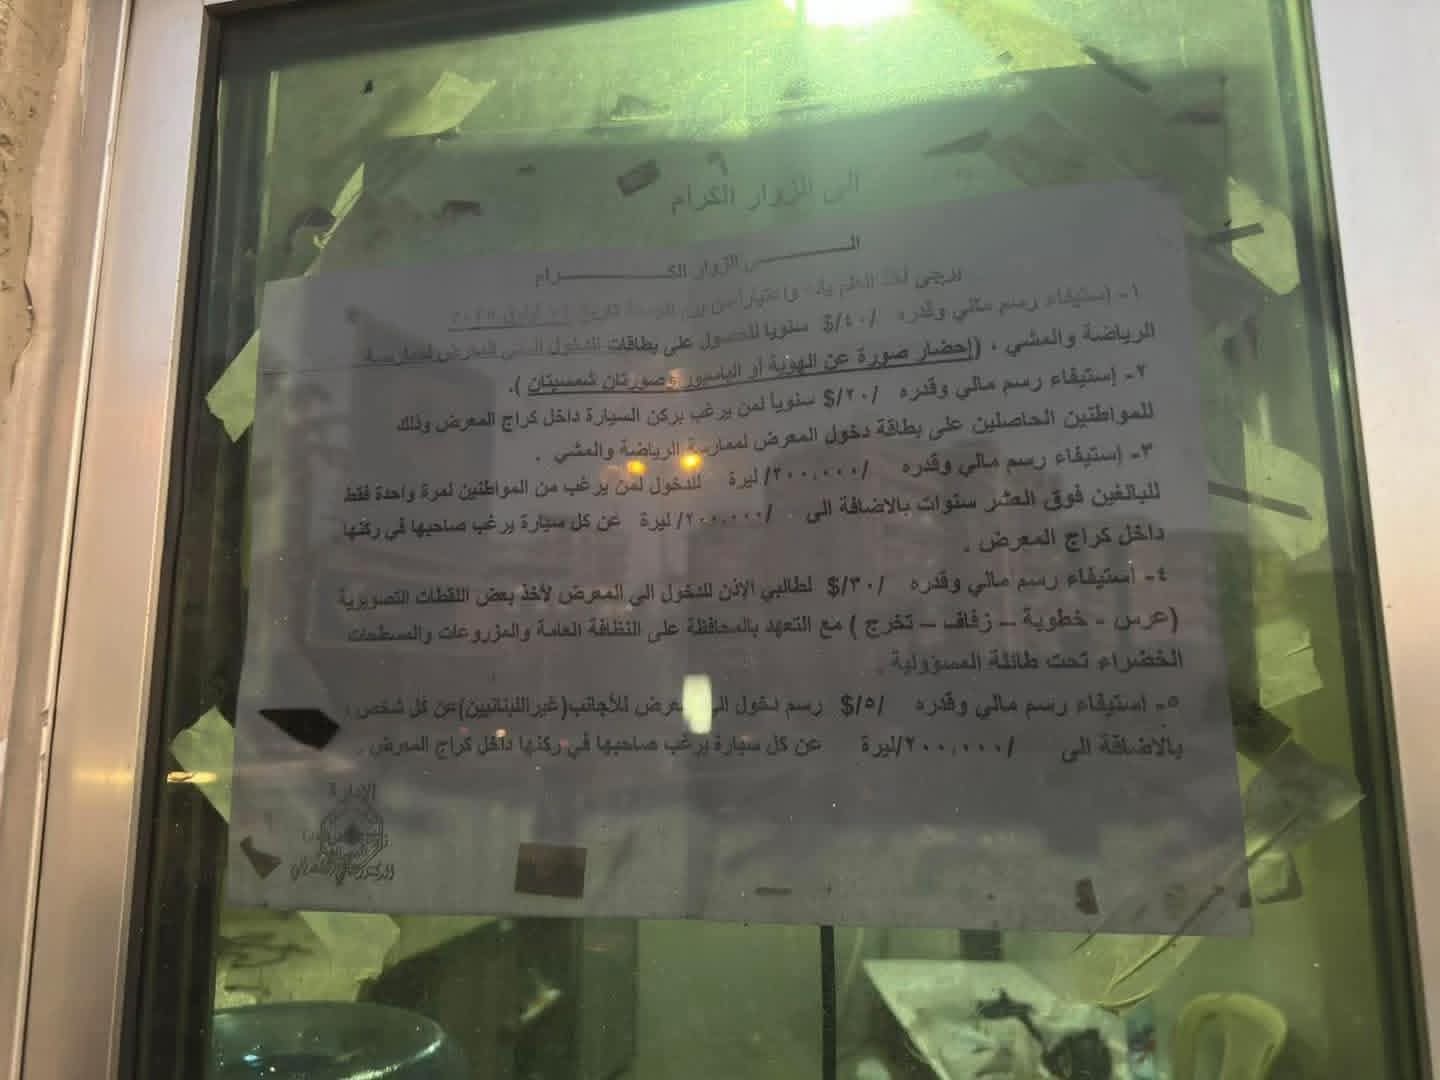 الى الزوار الكرام
الــــــــى الزوار الكــــــــرام
يرجى أخذ العلم بانه واعتباراً من يوم الجمعة تاريخ
١- إستيفاء رسم مالي وقدره /٤٠/$ سنويا للحصول على بطاقات للدخول الى المعرض لممارسة
الرياضة والمشي ، (إحضار صورة عن الهوية أو الباسبور وصورتان شمسيتان ).
٢- إستيفاء رسم مالي وقدره /٢٠/$ سنويا لمن يرغب بركن السيارة داخل كراج المعرض وذلك
للمواطنين الحاصلين على بطاقة دخول المعرض لممارسة الرياضة والمشي .
٣- إستيفاء رسم مالي وقدره /٢٠٠,٠٠٠/ ليرة للدخول لمن يرغب من المواطنين لمرة واحدة فقط
للبالغين فوق العشر سنوات بالاضافة الى /٢٠٠,٠٠٠/ ليرة عن كل سيارة يرغب صاحبها في ركنها
داخل كراج المعرض .
٤- إستيفاء رسم مالي وقدره /٣٠/$ لطالبي الإذن للدخول الى المعرض لأخذ بعض اللقطات التصويرية
(عرس - خطوبة – زفاف – تخرج ) مع التعهد بالمحافظة على النظافة العامة والمزروعات والمسطحات
الخضراء تحت طائلة المسؤولية .
٥- إستيفاء رسم مالي وقدره /٥/$ رسم دخول الى المعرض للأجانب(غيراللبنانيين)عن كل شخص ،
بالاضافة الى /٢٠٠,٠٠٠/ليرة عن كل سيارة يرغب صاحبها في ركنها داخل كراج المعرض .
الإدارة